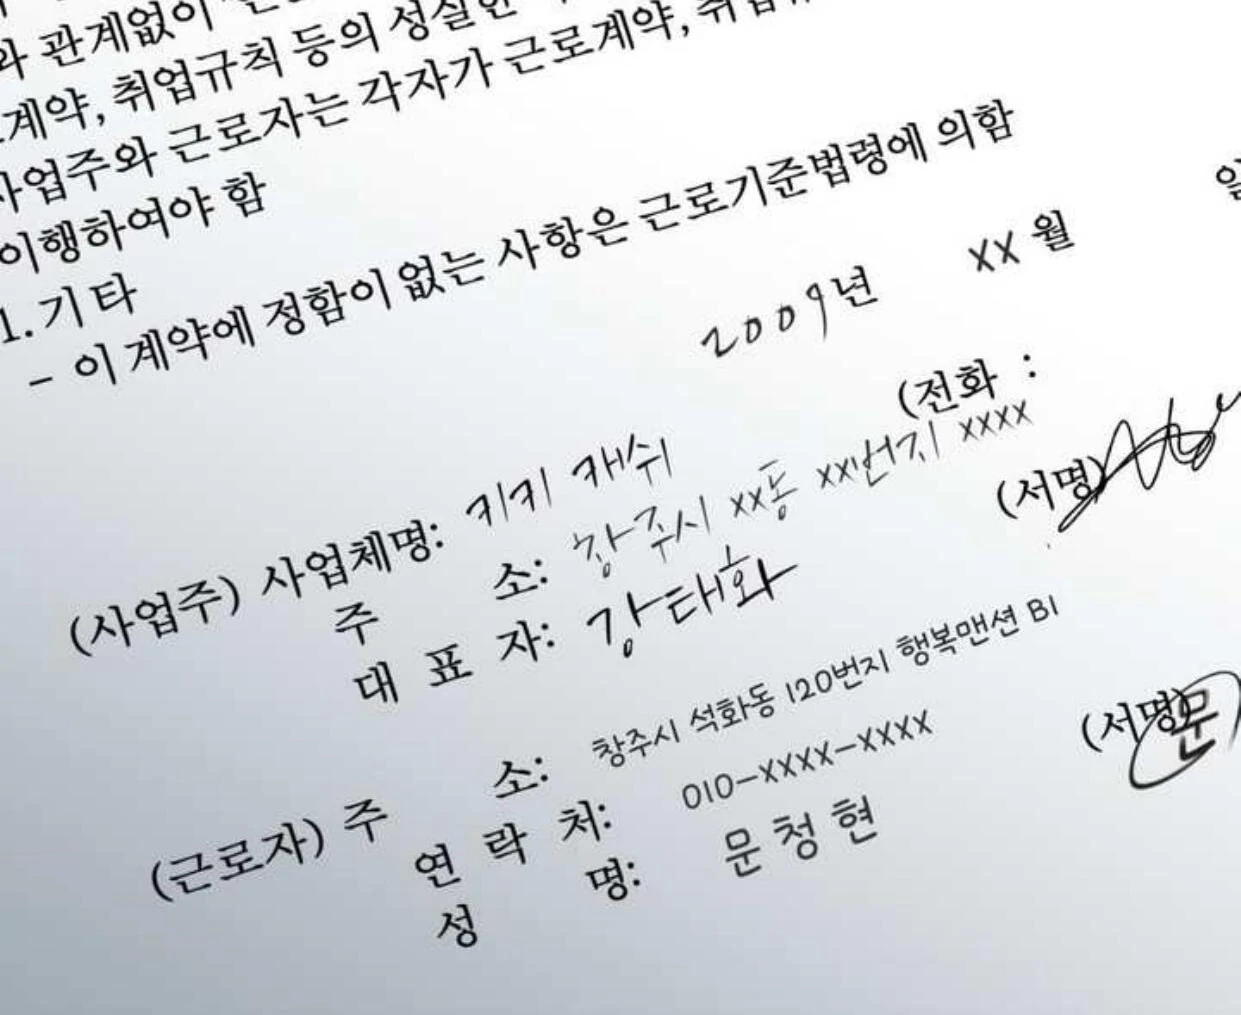 와 관계없이
계약, 취업규칙 등의 성실한
사업주와 근로자는 각자가 근로계약,
이행하여야 함
1. 기 타
- 이 계약에 정함이 없는 사항은 근로기준법령에 의함
2009년 XX 월
(전화 :
(사업주) 사업체명: 키키 캐쉬
주 소: 창주시 xx동 xx번지 xxxx
대 표 자: 강태화 (서명)
(근로자) 주 소: 창주시 석화동 120번지 행복맨션 B1
연 락 처: 010-XXXX-XXXX
성 명: 문청현 (서명) 문